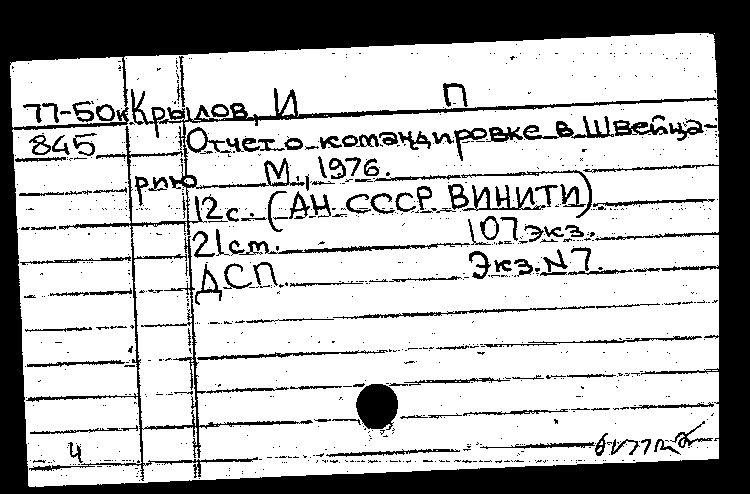 77-50к Крылов, И П
845 Отчет о командировке в Швейца-
рию М., 1976.
12с. (АН СССР ВИНИТИ)
21см. 107экз.
ДСП Экз.N7.
4